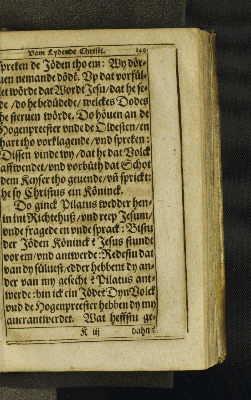 Vam Lydende Christi. 149
spreken de Jöden tho em: Wy dör-
uen nemande döde. Vp dat vorfül-
let wörde dat Wordt Jesu / dat he se-
de / do he bedüdede / welckes Dodes
he steruen wörde. Do höuen an de
Hogenpreester vnde de Oldesten / en
hart tho vorklagende / vnd spreken:
Dissen vinde wy / dat he dat Volck
affwendet / vnd vorbüth dat Schot
dem Keyser tho geuende / vñ sprickt:
he sy Christus ein Köninck.
Do ginck Pilatus wedder hen-
in int Richthuß / vnd reep Jesum /
vnde fragede en vnde sprack: Bistu
der Jöden Köninck? Jesus stundt
vor em / vnd antwerde: Redestu dat
van dy süluest / edder hebbent dy an-
der van my gesecht? Pilatus ant-
werde: bin ick ein Jöde? Dyn Volck
vnd de Hogenpreester hebben dy my
auerantwerdet. Wat heffstu ge-
K iij dahn?